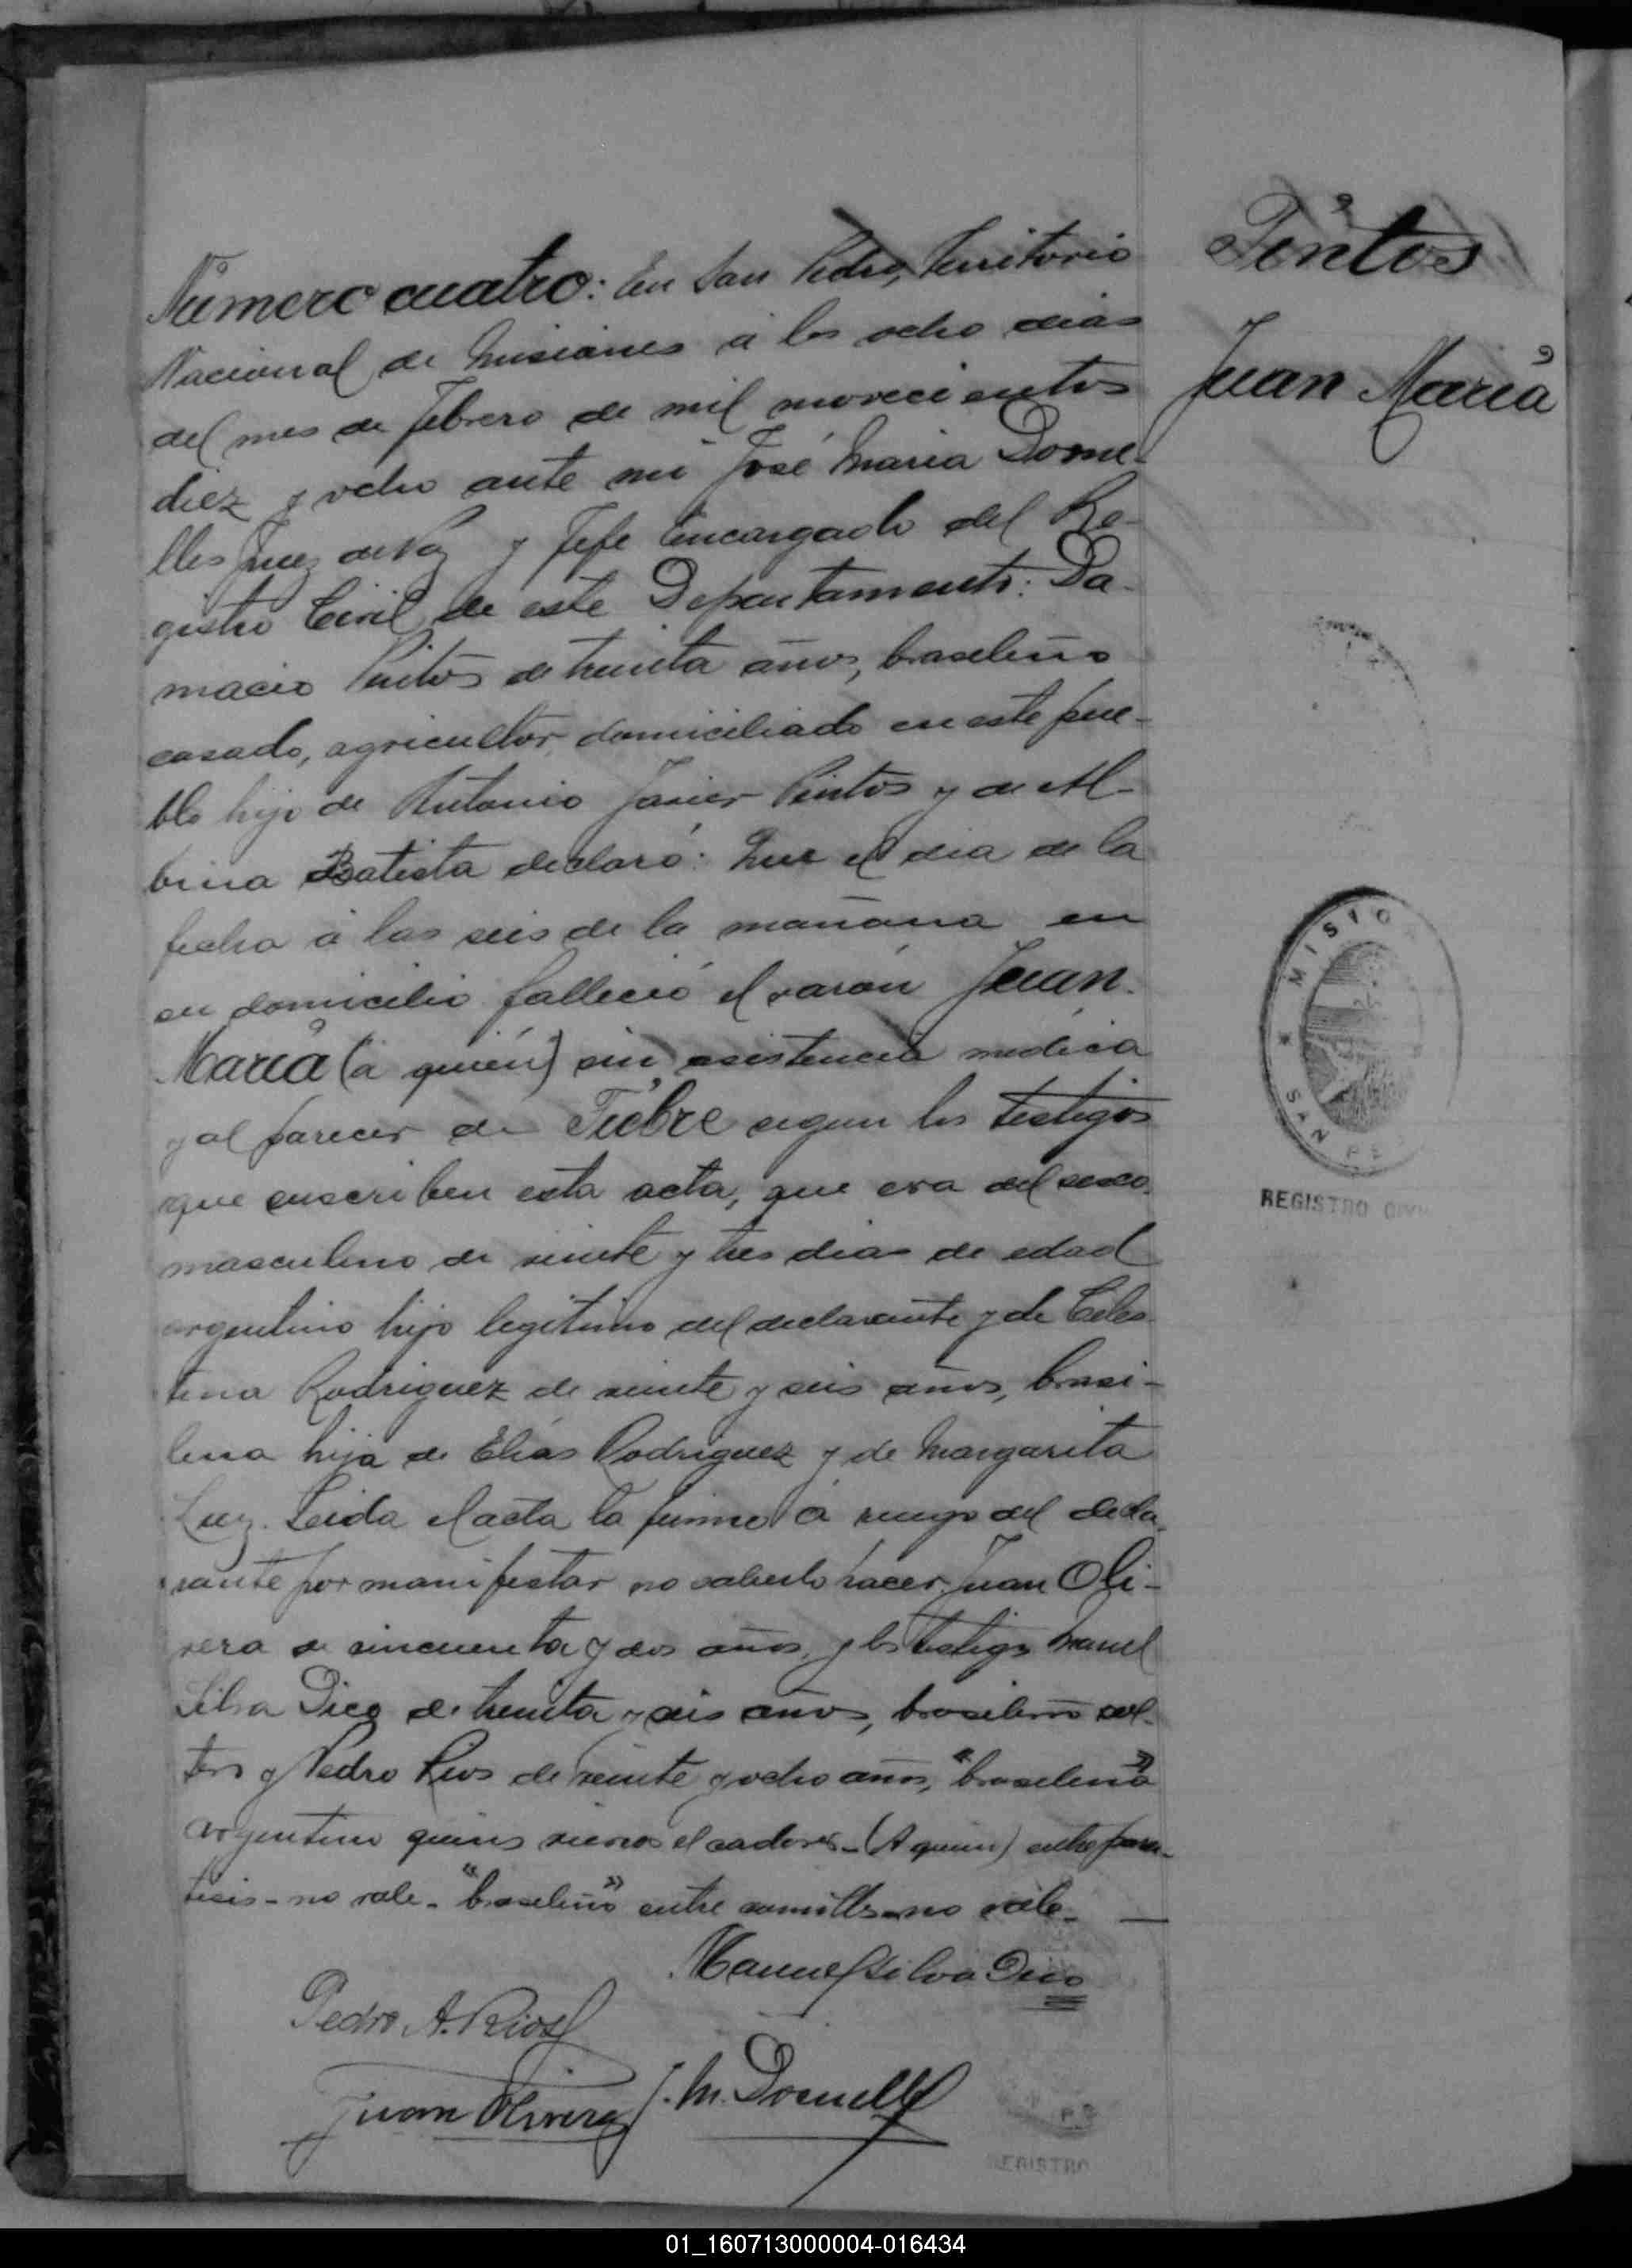 Número cuatro: En San Pedro, Territorio
Nacional de Misiones á los ocho dias
del mes de Febrero de mil novecientos
diez y ocho ante mi José Maria Dorne-
lles Juez de Paz y Jefe Encargado del Re-
gistro Civil de este Departamento: Da-
macio Pintos de treinta años, brasileño
casado, agricultor, domiciliado en este pue-
blo hijo de Antonio Javier Pintos y de Al-
bina Batista declaró: Que el dia de la
fecha á las seis de la mañana en
su domicilio falleció el varón Juan
María (á quién) sin asistencia médica
y al parecer de Fiebre segun los testigos
que suscriben esta acta, que era del sexo
masculino de veinte y tres dias de edad
argentino hijo legitimo del declarante y de Celes
tina Rodriguez de veinte y seis años, brasi-
lena hija de Elías Rodriguez y de Margarita
Luz. Leida el acta la firmó á ruego del decla-
rante por manifestar no saberlo hacer Juan Oli-
vera de cincuenta y dos años, y los testigos Manuel
Silva Dico de treinta y seis años, brasileño sol-
tero y Pedro Rios de veinte y ocho años, "brasileño"
argentino quienes vieron el cadover - (A quien) entre paren-
tesis - no vale - "brasileño" entre comillas - no vale - —
Manuel Silva Dico
Pedro A. Rios
Juan Olivera J. M. Dornelles
Pintos
Juan María
MISIO
SAN PE
REGISTRO CIVI
REGISTRO
01_160713000004-016434